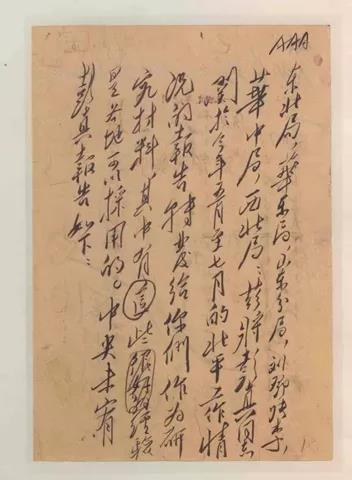 AAA
东北局、华东局、山东分局、刘邓张李、
華中局、西北局:兹将彭真同志
關於今年五月至七月的北平工作情
况的報告特发给你们作为研
究材料,其中有這些很好的經驗
是各地可以採用的。中央未宥
彭真報告如下: